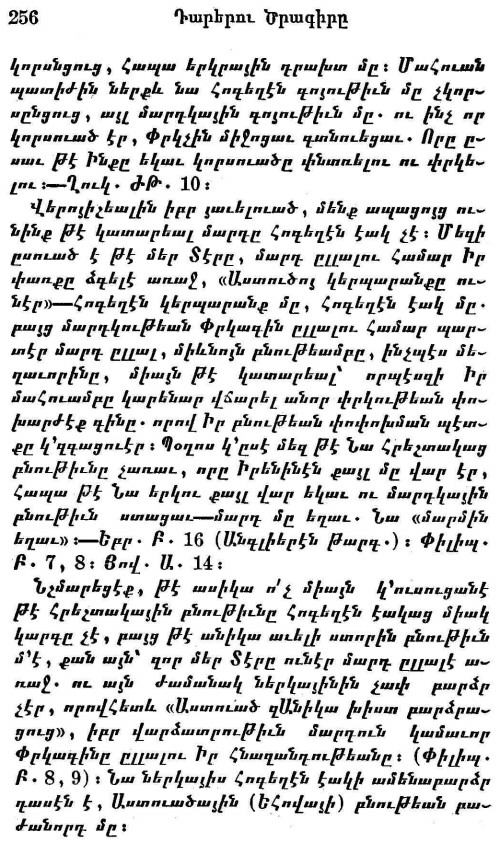 256 Դարերու Ծրագիրը
կորսնցուց, հապա երկրային դրախտ մը։ Մահուան
պատիժին ներքև նա հոգեղէն գոյութիւն մը չկոր-
սընցուց, այլ մարդկային գոյութիւն մը. ու ինչ որ
կորսուած էր, Փրկչին միջոցաւ գտնուեցաւ. Որը ը-
սաւ թէ Ինքը եկաւ կորսուածը փնտռելու ու փրկե-
լու։—Ղուկ. ԺԹ. 10։
Վերոյիշեալին իբր յաւելուած, մենք ապացոյց ու-
նինք թէ կատարեալ մարդը հոգեղէն էակ չէ։ Մեզի
ըսուած է թէ մեր Տէրը, մարդ ըլլալու համար Իր
փառքը ձգելէ առաջ, «Աստուծոյ կերպարանքը ու-
նէր»—հոգեղէն կերպարանք մը, հոգեղէն էակ մը.
բայց մարդկութեան Փրկագին ըլլալու համար պար-
տէր մարդ ըլլալ, միևնոյն բնութեամբը, ինչպէս մե-
ղաւորինը, միայն թէ կատարեալ՝ որպէսզի Իր
մահուամբը կարենար վճարել անոր փրկութեան փո-
խարժէք գինը. որով Իր բնութեան փոփոխման պէտ-
քը կ՚զգացուէր։ Պօղոս կ՚ըսէ մեզ թէ Նա հրեշտակաց
բնութիւնը չառաւ, որը Իրենինէն քայլ մը վար էր,
հապա թէ Նա երկու քայլ վար եկաւ ու մարդկային
բնութիւն ստացաւ—մարդ մը եղաւ. Նա «մարմին
եղաւ»։—Եբր. Բ. 16 (Անգլիերէն Թարգ.)։ Փիլիպ.
Բ. 7, 8։ Յով. Ա. 14։
Նշմարեցէք, թէ ասիկա ո՛չ միայն կ՚ուսուցանէ
թէ հրեշտակային բնութիւնը հոգեղէն էակաց միակ
կարգը չէ, բայց թէ անիկա աւելի ստորին բնութիւն
մ՚է, քան այն՝ զոր մեր Տէրը ունէր մարդ ըլլալէ ա-
ռաջ. ու այն ժամանակ ներկայինին չափ բարձր
չէր, որովհետև «Աստուած զԱնիկա խիստ բարձրա-
ցուց», իբր վարձատրութիւն մարդուն կամաւոր
Փրկագինը ըլլալու Իր հնազանդութեանը։ (Փիլիպ.
Բ. 8, 9)։ Նա ներկայիս հոգեղէն էակի ամենաբարձր
դասէն է, Աստուածային (Եհովայի) բնութեան բա-
ժանորդ մը։